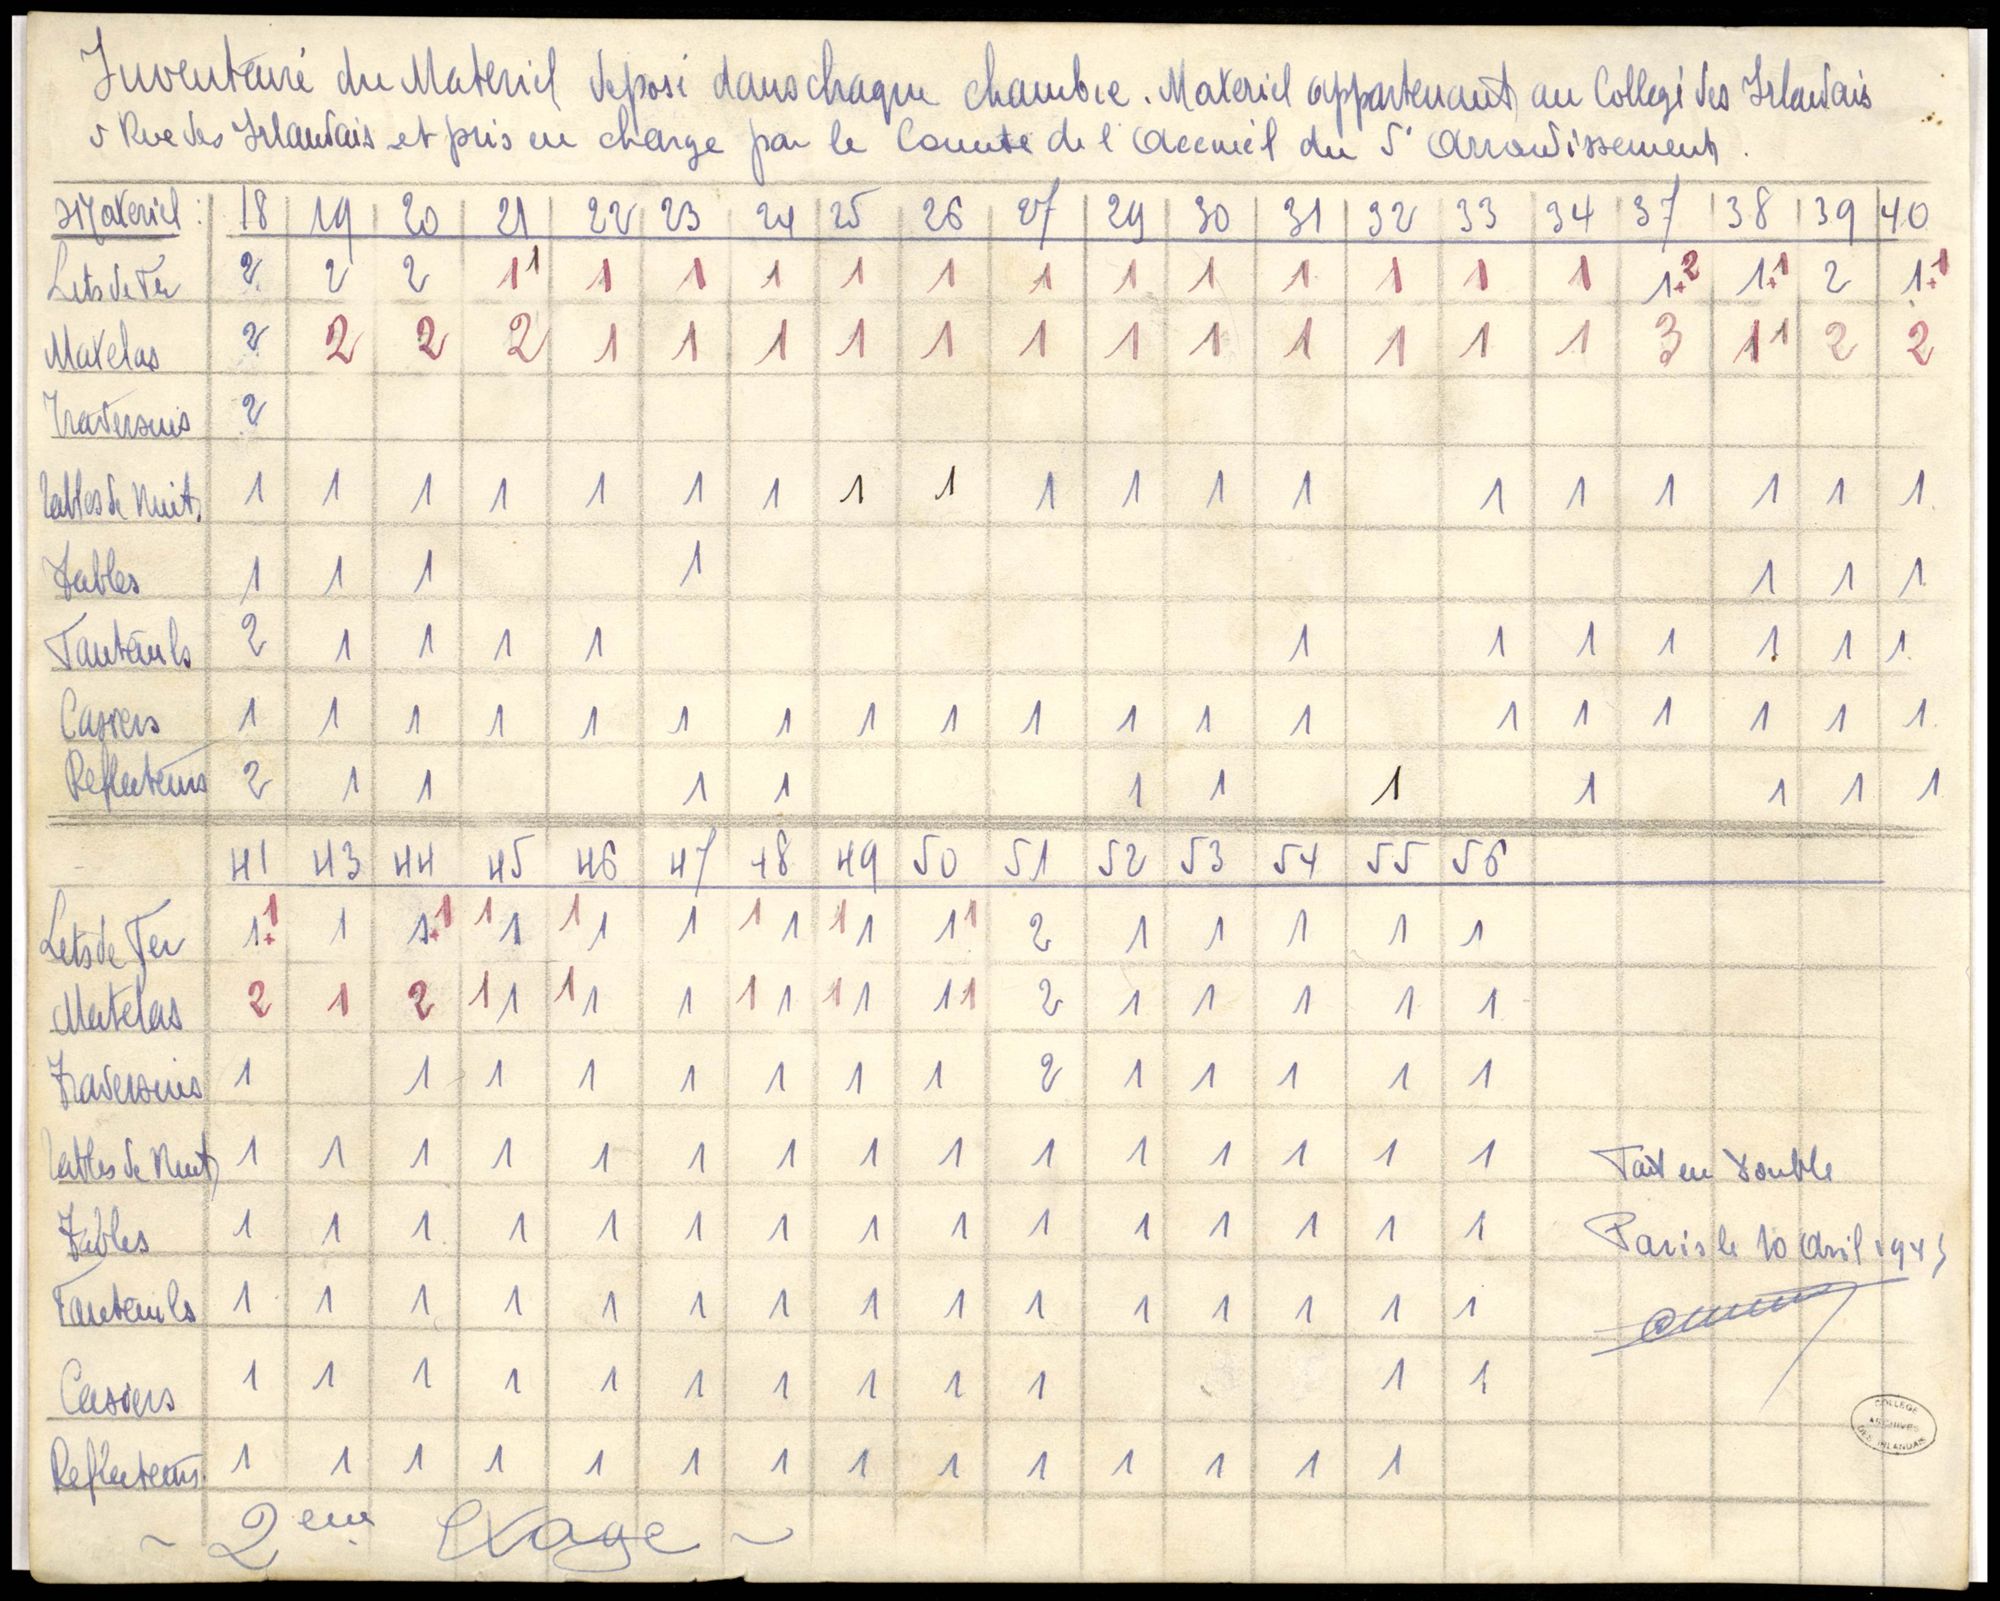 Inventairé du Materiel deposi dans chaque chambre. Materiel appartenant au Collegé des Irlandais
5 Rue des Irlandais et pris en charge par le Comite de l'Accueil du 5e Arrondissement.
Materiel : 18 19 20 21 22 23 24 25 26 27 29 30 31 32 33 34 37 38 39 40
Lits de Fer 2 2 2 1 1 1 1 1 1 1 1 1 1 1 1 1 1 1+2 1+1 2 1+1
Matelas 2 2 2 2 1 1 1 1 1 1 1 1 1 1 1 1 3 1 1 2 2
Traversins 2
Tables de Nuit 1 1 1 1 1 1 1 1 1 1 1 1 1 1 1 1 1 1 1
Tables 1 1 1 1 1 1 1
Fauteuils 2 1 1 1 1 1 1 1 1 1 1 1
Casiers 1 1 1 1 1 1 1 1 1 1 1 1 1 1 1 1 1 1 1
Reflecteurs 2 1 1 1 1 1 1 1 1 1 1 1
41 43 44 45 46 47 48 49 50 51 52 53 54 55 56
Lits de Fer 1+1 1 1+1 1 1 1 1 1 1 1 1 1 1 1 2 1 1 1 1 1
Matelas 2 1 2 1 1 1 1 1 1 1 1 1 1 1 2 1 1 1 1 1
Traversins 1 1 1 1 1 1 1 1 2 1 1 1 1 1
Tables de Nuit 1 1 1 1 1 1 1 1 1 1 1 1 1 1 1
Fait en double
Tables 1 1 1 1 1 1 1 1 1 1 1 1 1 1 1
Paris le 10 Avril 1945
Fauteuils 1 1 1 1 1 1 1 1 1 1 1 1 1 1 1
Casiers 1 1 1 1 1 1 1 1 1 1 1 1
COLLEGE
ARCHIVES
DES IRLANDAIS
Reflecteurs 1 1 1 1 1 1 1 1 1 1 1 1 1 1
~ 2eme Etage ~